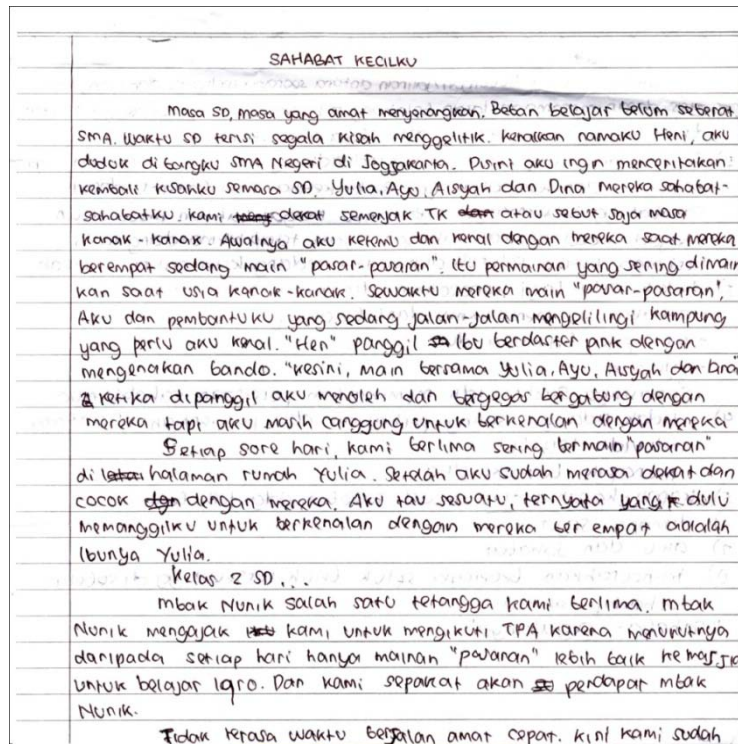 SAHABAT KECILKU
Masa SD, masa yang amat menyenangkan. Beban belajar belum seberat
SMA. Waktu SD terisi segala kisah menggelitik. Kenalkan namaku Heni, aku
duduk di bangku SMA Negeri di Jogjakarta. Disini aku ingin menceritakan
kembali kisahku semasa SD. Yulia, Ayu, Aisyah dan Dina mereka sahabat-
sahabatku. Kami dekat semenjak TK dan atau sebut saja masa
kanak-kanak. Awalnya aku ketemu dan kenal dengan mereka saat mereka
berempat sedang main "pasar-pasaran". Itu permainan yang sering dimain
kan saat usia kanak-kanak. Sewaktu mereka main "pasar-pasaran",
Aku dan pembantuku yang sedang jalan-jalan mengelilingi kampung
yang perlu aku kenal. "Hen" panggil Ibu berdaster pink dengan
mengenakan bando. "Kesini, main bersama Yulia, Ayu, Aisyah dan Dina"
ketika dipanggil aku menoleh dan bergegas bergabung dengan
mereka tapi aku masih canggung untuk berkenalan dengan mereka
Setiap sore hari, kami berlima sering bermain "pasaran"
di halaman rumah Yulia. Setelah aku sudah merasa dekat dan
cocok dgn dengan mereka. Aku tau sesuatu, ternyata yang dulu
memanggilku untuk berkenalan dengan mereka ber empat adalah
Ibunya Yulia.
Kelas 2 SD...
Mbak Nunik salah satu tetangga kami berlima. Mbak
Nunik mengajak kami untuk mengikuti TPA karena menurutnya
daripada setiap hari hanya mainan "pasaran" lebih baik ke masjid
untuk belajar Iqro. Dan kami sepakat akan pendapat mbak
Nunik.
Tidak terasa waktu berjalan amat cepat. Kini kami sudah